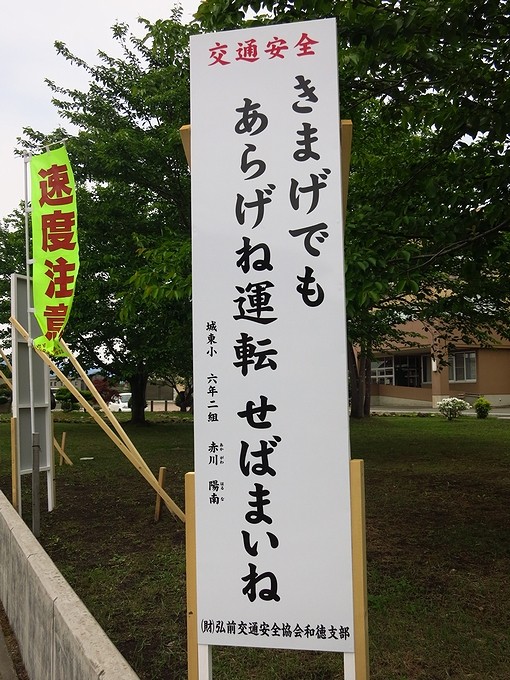 交通安全
きまげでも
あらげね運転 せばまいね
城東小 六年二組 赤川 陽南
あか がわ はる な
(財)弘前交通安全協会和徳支部
速度注意